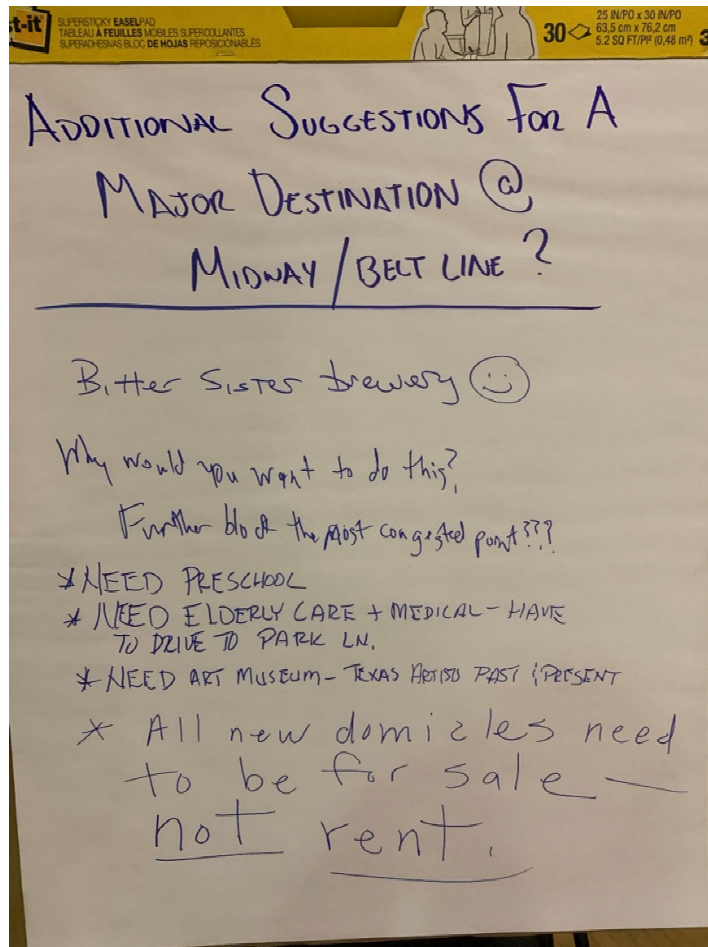 st-it
SUPERSTICKY EASELPAD
TABLEAU À FEUILLES MOBILES SUPERCOLLANTES
SUPERADHESIVAS BLOC DE HOJAS REPOSICIONABLES
30
25 IN/PO x 30 IN/PO
63,5 cm x 76,2 cm
5.2 SQ FT/PI² (0,48 m²)
3
ADDITIONAL SUGGESTIONS FOR A
MAJOR DESTINATION @
MIDWAY/BELT LINE?
Bitter Sister brewery ☺
Why would you want to do this?
Further block the most congested point???
* NEED PRESCHOOL
* NEED ELDERLY CARE + MEDICAL - HAVE
TO DRIVE TO PARK LN.
* NEED ART MUSEUM - TEXAS ARTISTS PAST & PRESENT
* All new domiciles need
to be for sale —
not rent.